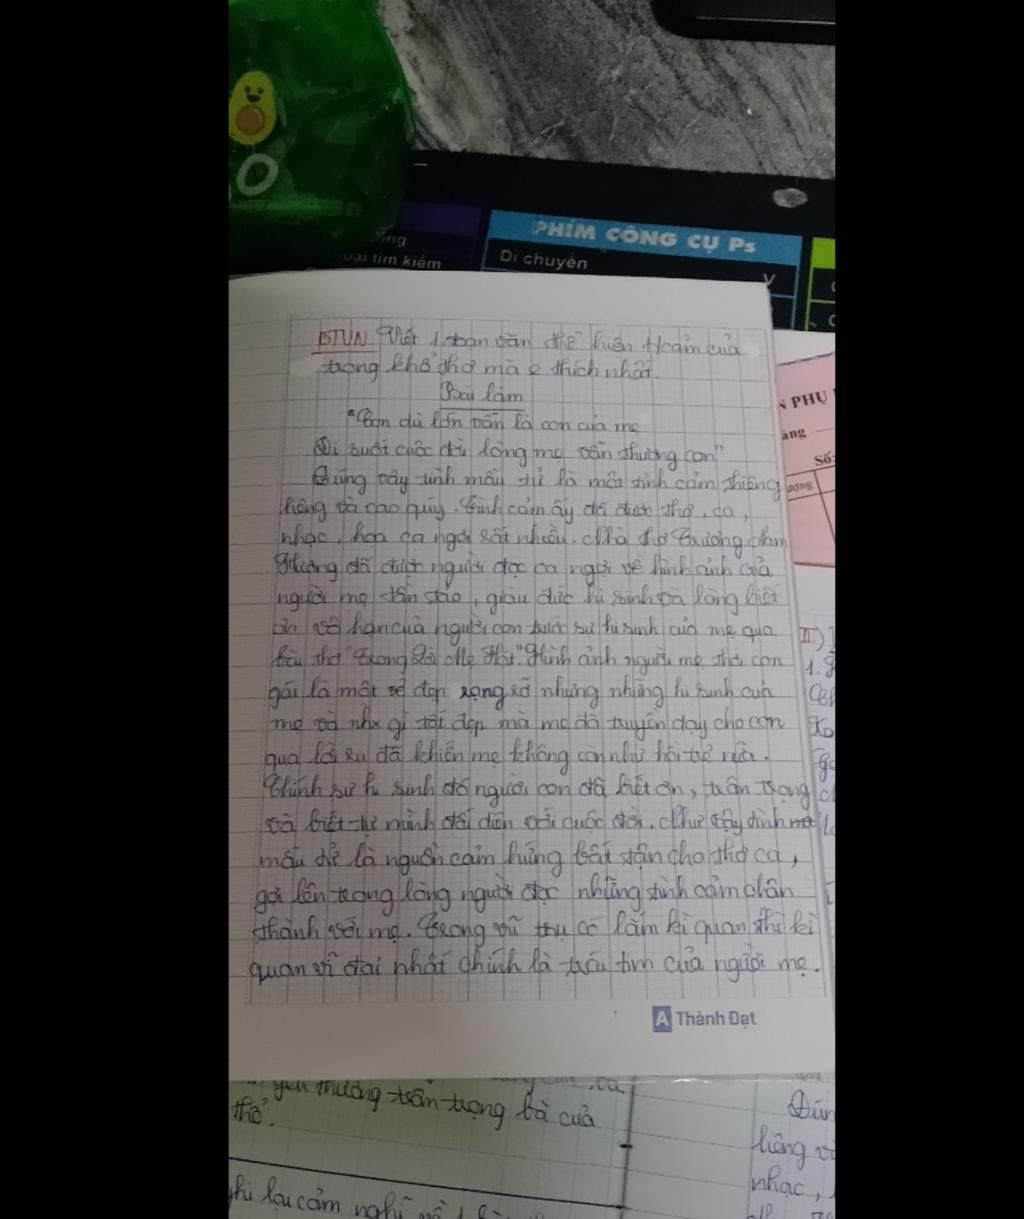 PHÍM CÔNG CỤ Ps
ng
oại tìm kiếm
Di chuyển
V
BTVN Viết 1 đoạn văn thể hiện t/cảm của
trong khổ thơ mà e thích nhất.
Bài làm
"Con dù lớn vẫn là con của mẹ
Đi suốt cuộc đời lòng mẹ vẫn thương con"
Đúng vậy tình mẫu tử là một tình cảm thiêng
liêng và cao quý. Tình cảm ấy đã được thơ, ca,
nhạc, họa ca ngợi rất nhiều. Nhà thơ Trương Nam
Hương đã được người đọc ca ngợi về hình ảnh của
người mẹ tần tảo, giàu đức hi sinh và lòng biết
ơn vô hạn của người con trước sự hi sinh của mẹ qua
bài thơ "Trong Lời Mẹ Hát". Hình ảnh người mẹ thời con
gái là một vẻ đẹp rạng rỡ nhưng những hi sinh của
mẹ và nhx gì tốt đẹp mà mẹ đã truyền dạy cho con
qua lời ru đã khiến mẹ không còn như hồi trẻ nữa.
Chính sự hi sinh đó người con đã biết ơn, trân trọng
và biết tự mình đối diện với cuộc đời. Như vậy tình
mẫu tử là nguồn cảm hứng bất tận cho thơ ca,
gợi lên trong lòng người đọc những tình cảm chân
thành với mẹ. Trong vũ trụ có lắm kì quan thì kì
quan vĩ đại nhất chính là trái tim của người mẹ.
A Thành Đạt
N PHỤ
áng
Số:
ương
II)
1.
yêu thương trân trọng bà của
thơ.
ghi lại cảm nghĩ về 1
Đún
liêng và
nhạc,